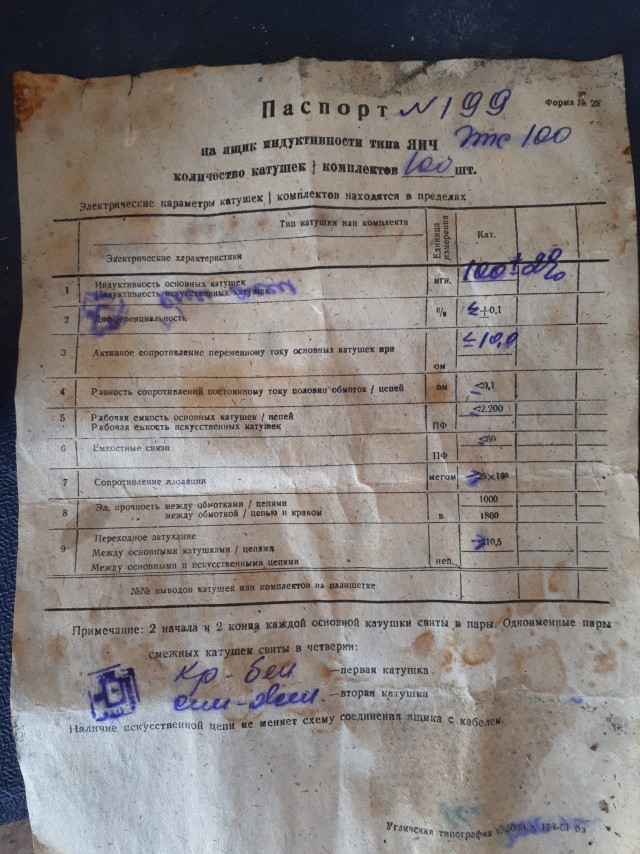 Паспорт №199
Форма № 22
на ящик индуктивности типа ЯИЧ 100
количество катушек / комплектов 100 шт.
Электрические параметры катушек / комплектов находятся в пределах
Тип катушки или комплекта
Электрические характеристики
Единица измерения
Кат.
1 Индуктивность основных катушек
Индуктивность искусственных катушек
мгн. 100±2%
2 Дифференциальность % ≤+0,1
3 Активное сопротивление переменному току основных катушек при ом ≤10,0
4 Разность сопротивлений постоянному току половин обмоток / цепей ом ≤0,1
5 Рабочая емкость основных катушек / цепей
Рабочая емкость искусственных катушек ПФ ≤2.200
6 Емкостные связи ПФ ≤60
7 Сопротивление изоляции мегом
8 Эл. прочность между обмотками / цепями 1000
между обмоткой / цепью и краном в. 1800
9 Переходное затухание
Между основными катушками / цепями ≥10,5
Между основными и искусственными цепями неп.
№№ выводов катушек или комплектов на планшетке
Примечание: 2 начала и 2 конца каждой основной катушки свиты в пары. Одноименные пары
смежных катушек свиты в четверки:
кр-бел —первая катушка
син-жел —вторая катушка
Наличие искусственной цепи не меняет схему соединения ящика с кабелем.
Угличская типография